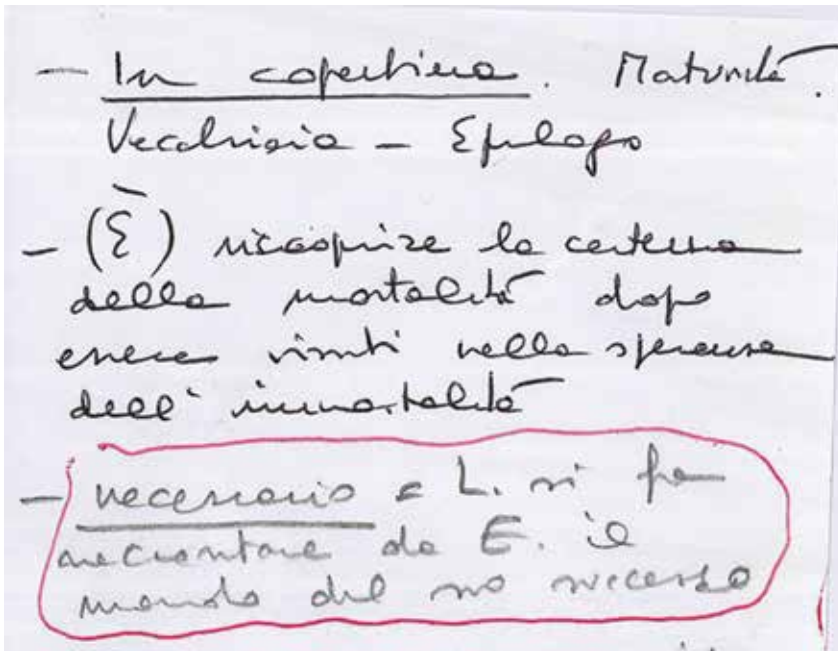 - In copertina. Maturità.
Vecchiaia - Epilogo
- (È) riscoprire la certezza
della mortalità dopo
essere vissuti nella speranza
dell'immortalità
- necessario = L. si fa
raccontare da E. il
mondo del suo successo